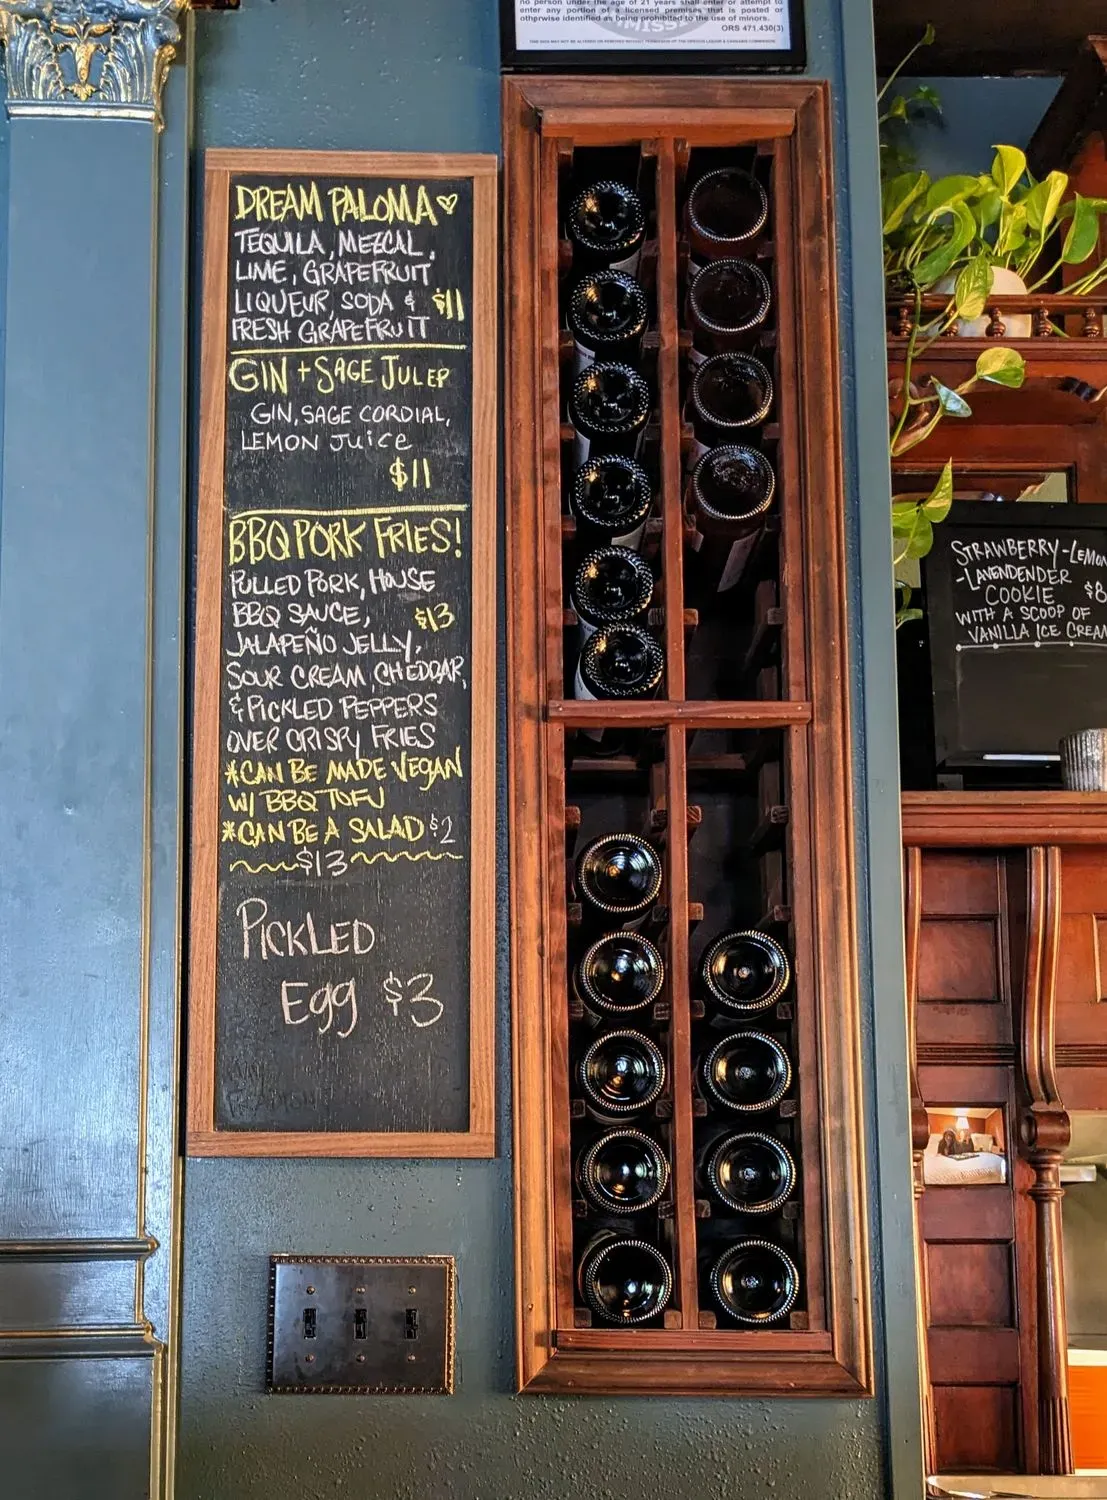 no person under the age of 21 years shall enter or attempt to
enter any portion of a licensed premises that is posted or
otherwise identified as being prohibited to the use of minors.
ORS 471.430(3)
DREAM PALOMA♡
TEQUILA, MEZCAL,
LIME, GRAPEFRUIT
LIQUEUR, SODA & $11
FRESH GRAPEFRUIT
GIN + SAGE JULEP
GIN, SAGE CORDIAL,
LEMON JUICE
$11
BBQ PORK FRIES!
PULLED PORK, HOUSE
BBQ SAUCE, $13
JALAPEÑO JELLY,
SOUR CREAM, CHEDDAR,
& PICKLED PEPPERS
OVER CRISPY FRIES
*CAN BE MADE VEGAN
W/ BBQ TOFU
*CAN BE A SALAD $2
$13
PICKLED
Egg $3
STRAWBERRY-LEMON
-LAVENDENDER
COOKIE $8
WITH A SCOOP OF
VANILLA ICE CREAM